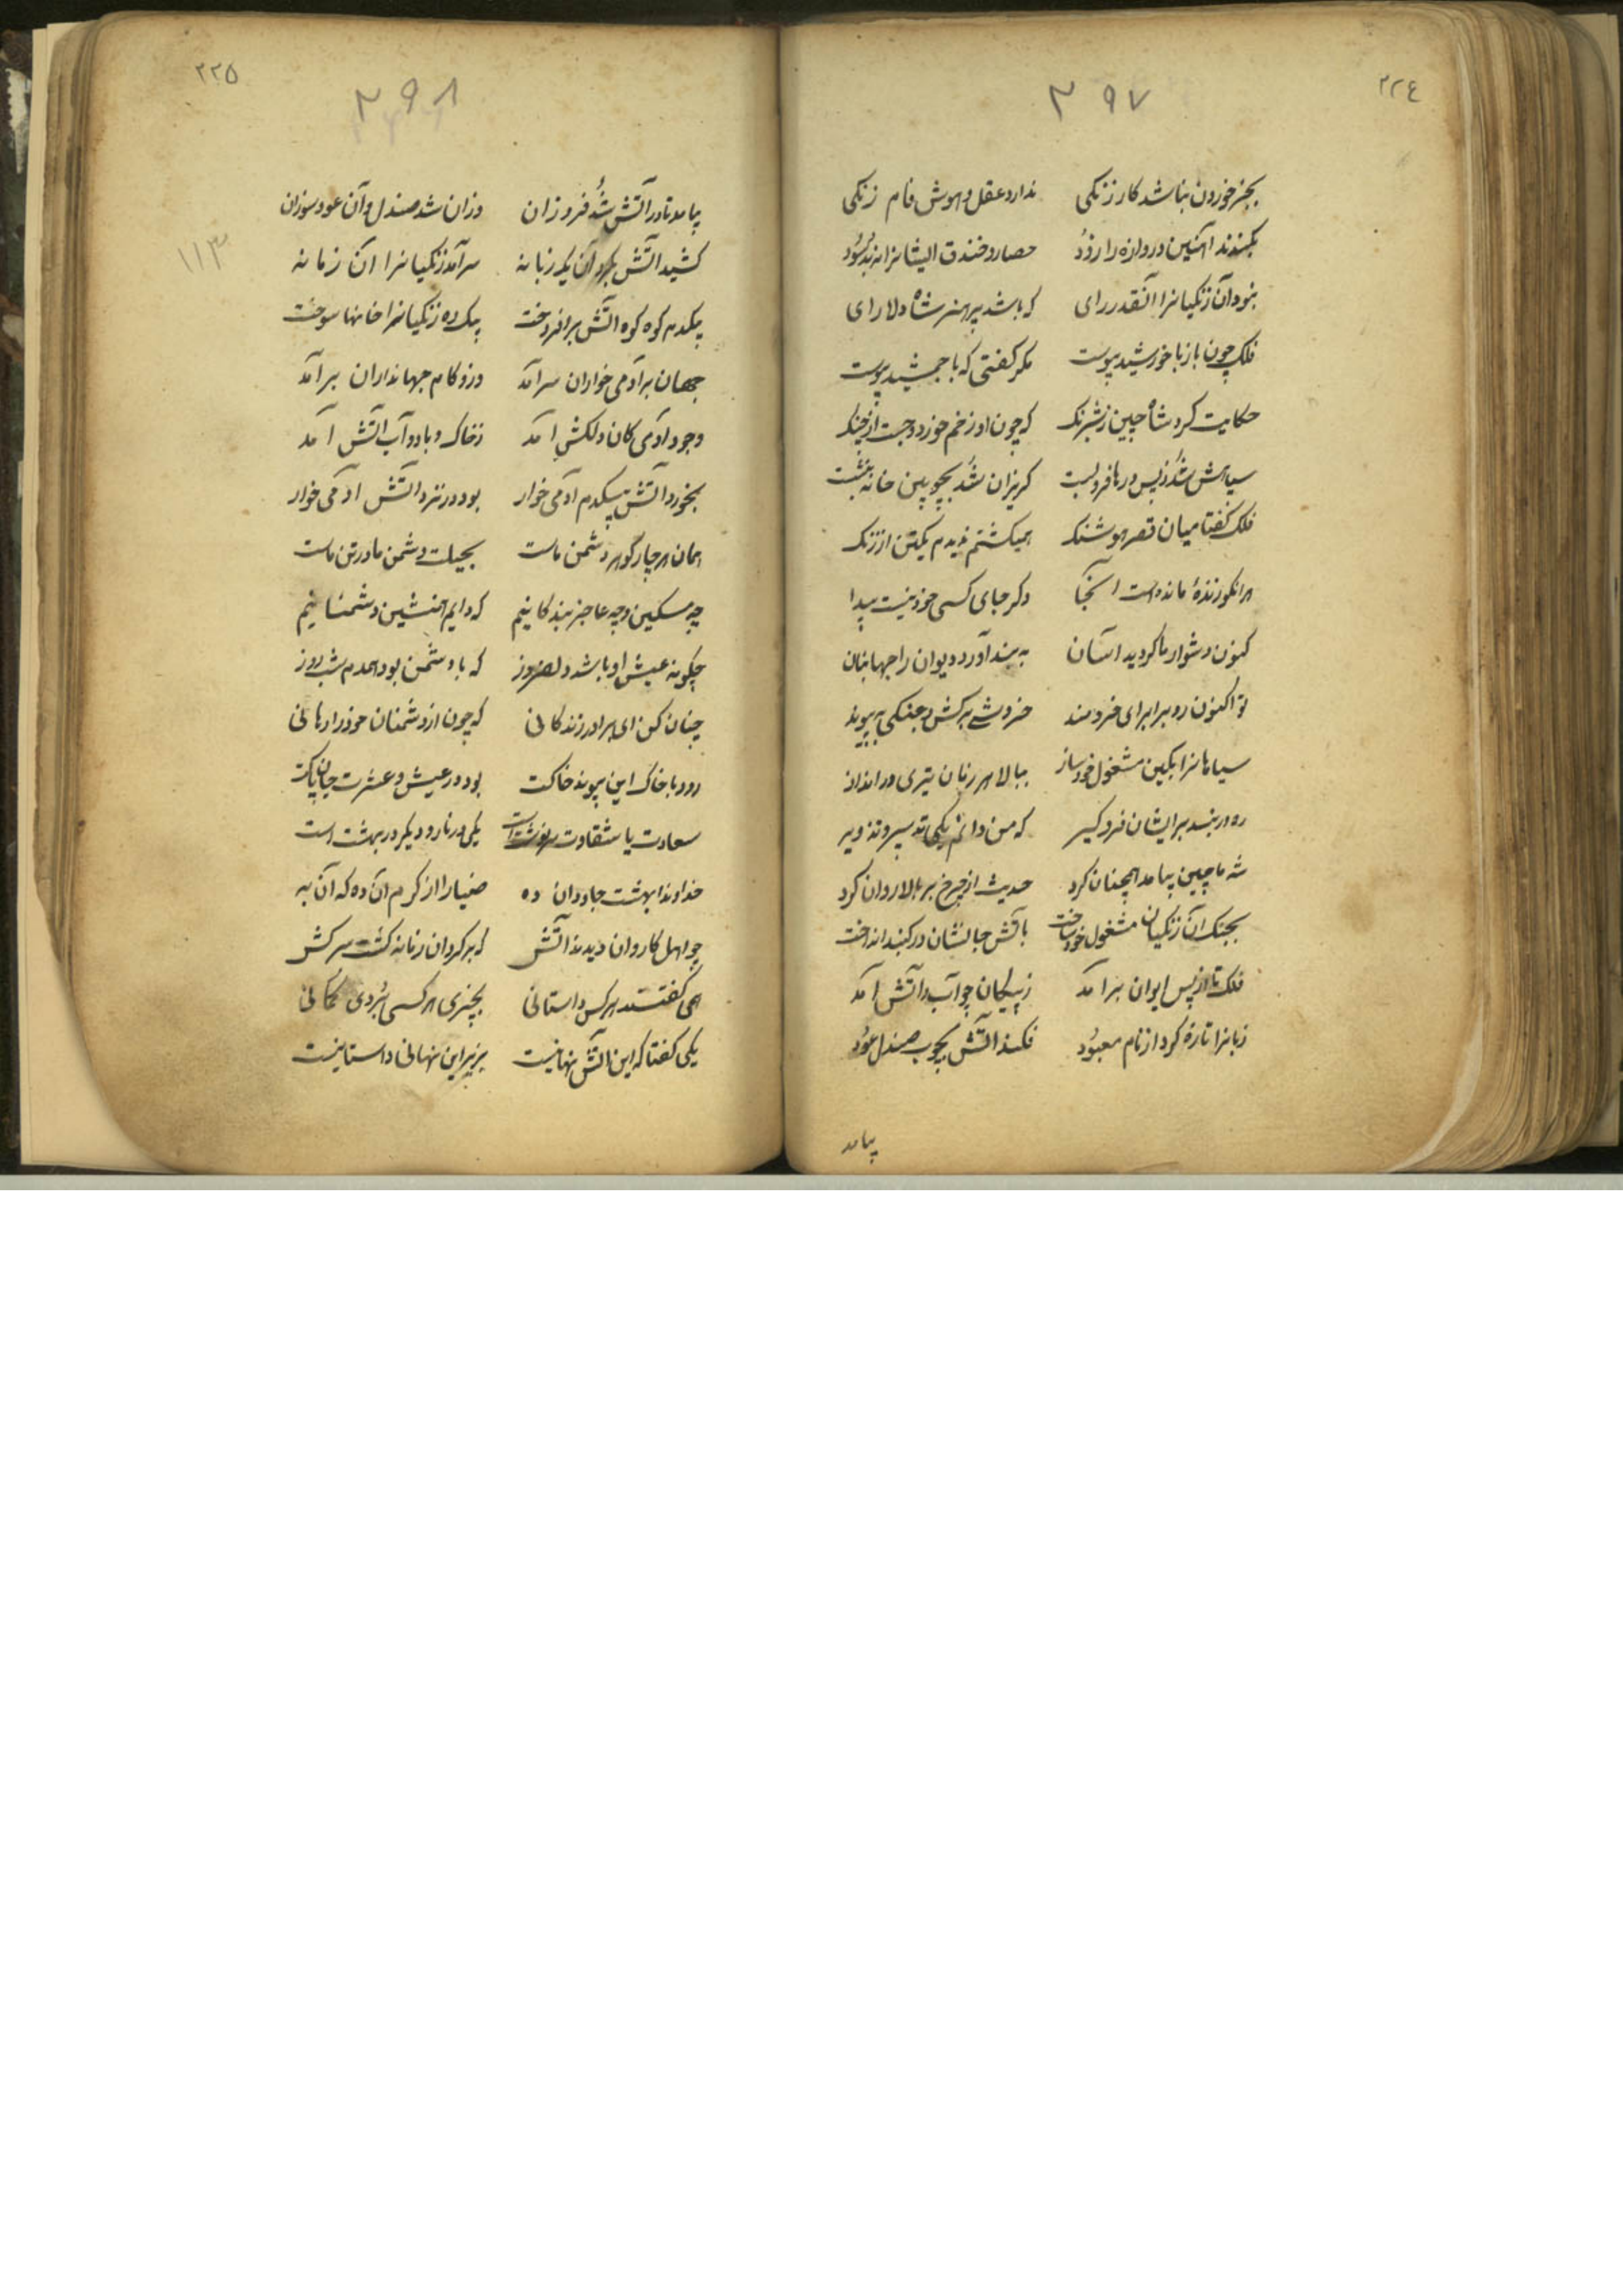 ٢٢٤
٣٩٧
بجز خوردن نباشد کار زنگی ندارد عقل و هوش فام زنگی
بکندند آهنین دروازه را زود حصار و خندق ایشانرا نه بد سود
نبود آن زنگیانرا آنقدر رای که باشد پر هنر شاه دلارای
فلک چون باز با خورشید پیوست مگر گفتی که با جمشید پیوست
حکایت کرد شاه چین ز شبرنگ که چون او زخم خورد و جست از چنگ
سپاهش شد ز پس درها فرو بست گریزان شد بچوبین خانه بنشست
فلک گفتا میان قصر هوشنگ همیگشتم ندیدم یکتن از زنگ
هر انکو زندهٔ مانده است آنجا دکر جای کسی خود نیست پیدا
کنون دشوار ما کردید آسان به بند آورد دیوان را جهانبان
تو اکنون رو برابر ای خردمند خروشی برکش و جنگی به پیوند
سیاهانرا بکین مشغول خود ساز ببالا هر زمان تیری در انداز
ره در بند بر ایشان فرو گیر که من دانم یکی تدبیر و تزویر
شه ماچین بیامد همچنان کرد حدیث از چرخ بر بالا روان کرد
بجنک آن زنگیان مشغول خود ساخت بآتش جانشان در کنبد انداخت
فلک تا از پس ایوان برآمد ز پیکان چو آب و آتش آمد
زبانرا تازه کرد از نام معبود فکند آتش بچوب صندل عود
بیامد
٢٢٥
٣٩٨
١١٣
بیامد تا در آتش شد فروزان وزان شد صندل و آن عود سوزان
کشید آتش بگرد آن یک زبانه سرآمد زنگیانرا آن زمانه
بیکدم کوه کوه آتش برافروخت بیک ره زنگیانرا خانها سوخت
جهان بر آدمی خواران سرآمد وزو کام جهانداران برآمد
وجود آدمی کان دلکش آمد ز خاک و باد و آب آتش آمد
بخورد آتش بیکدم آدمی خوار بود در نزد آتش آدمی خوار
همان هر چار گوهر دشمن ماست بحیلت دشمن ما در تن ماست
چه مسکین و چه عاجز بندگانیم که دایم همنشین دشمنانیم
چگونه عیش او باشد دلفروز که با دشمن بود همدم شب و روز
چنان کن ای برادر زندگانی که چون از دشمنان خود را رهانی
رود با خاک این پیوند خاکت بود در عیش و عشرت جان پاکت
سعادت یا شقاوت سرنوشت است یکی در نار و دیگر در بهشت است
خداوندا بهشت جاودان ده ضیا را از کرم آن ده که آن به
چو اهل کاروان دیدند آتش که بر کردان زبانه کشت سرکش
همی گفتند هر کس داستانی بچیزی هر کسی بردی گمانی
یکی گفتا که این آتش نهانیست بزیر این نهانی داستانیست